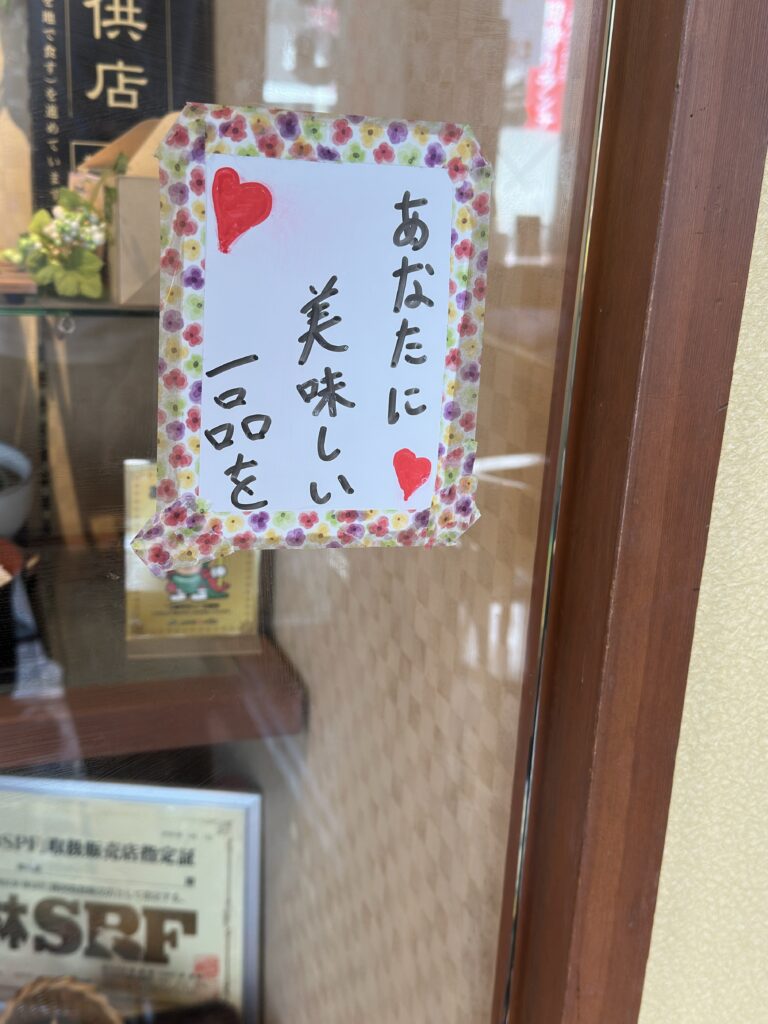 あなたに
美味しい
一品を
供店
を地で食す)を進めていま
SPF」取扱販売店指定証
SRF